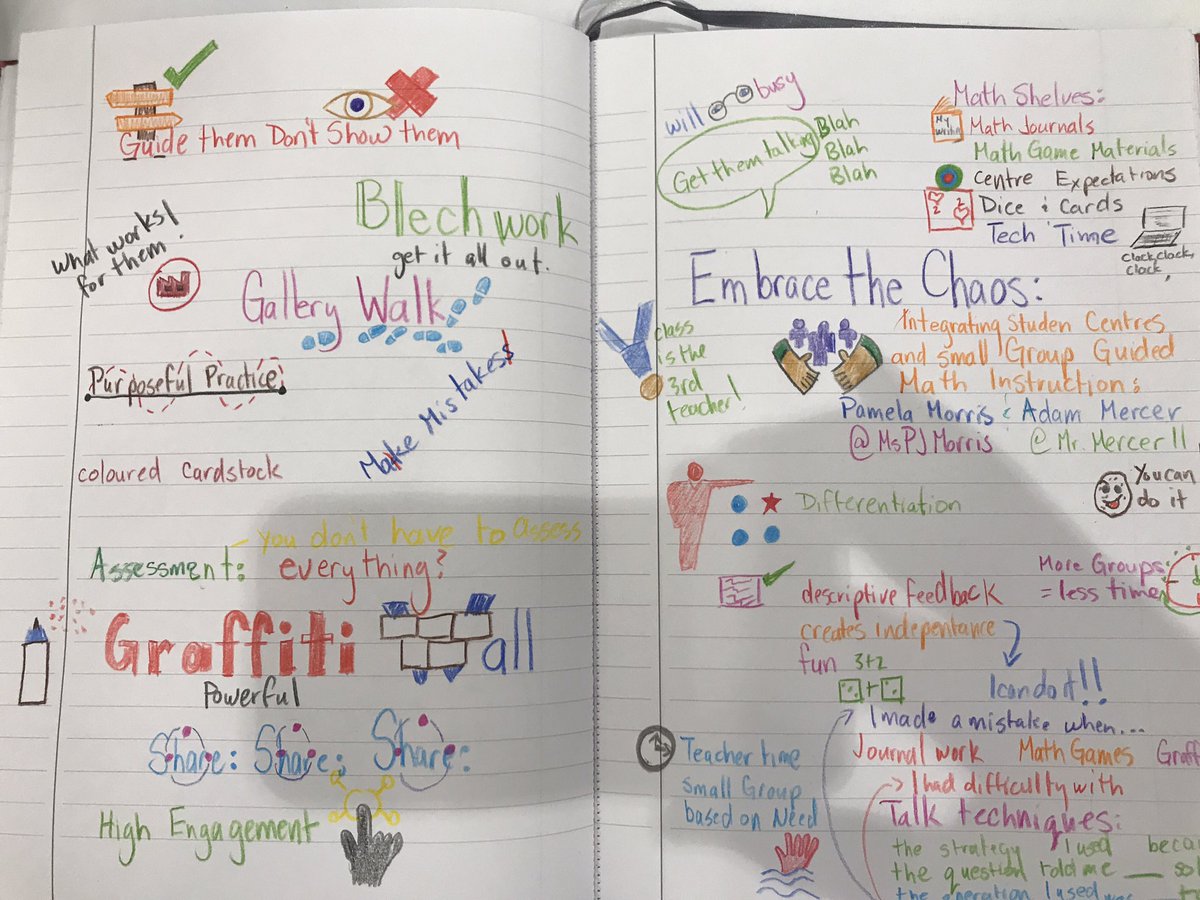 Guide them Don't Show them
Blech work
get it all out.
What works
for them!
Gallery Walk
Purposeful Practice
Make Mistakes!
coloured Cardstock
you don't have to assess
Assessment: everything?
Graffiti Wall
Powerful
Share: Share: Share:
High Engagement
will busy
Get them talking
Blah
Blah
Blah
Math Shelves:
My
Math Journals
Math Game Materials
Centre Expectations
2 2
Dice & Cards
Tech Time
Clack, clack,
clack,
Embrace the Chaos:
class
is the
3rd
teacher!
Integrating Studen Centres
and small Group Guided
Math Instruction:
Pamela Morris & Adam Mercer
@MsPJMorris @Mr.Mercer11
Differentiation
You can
do it
More Groups
= less time
descriptive feedback
creates indepentance
fun 3+2
+
I can do it!!
I made a mistake when...
Teacher time
small Group
based on Need
Journal work Math Games Graff
I had difficulty with
Talk techniques:
the strategy I used beca
the question told me __ so
the operation I used was